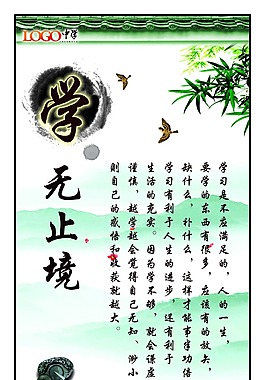 LOGO中学
学
无止境
学习是不应满足的，人的一生，
要学的东西有很多，应该有的放矢，
缺什么，补什么，这样才能事半功倍
学习有利于人生的进步，还有利于
生活的充实。因为学不够，就会谦虚
谨慎，越学越会觉得自己无知、渺小
则自己的感悟和收获就越大。